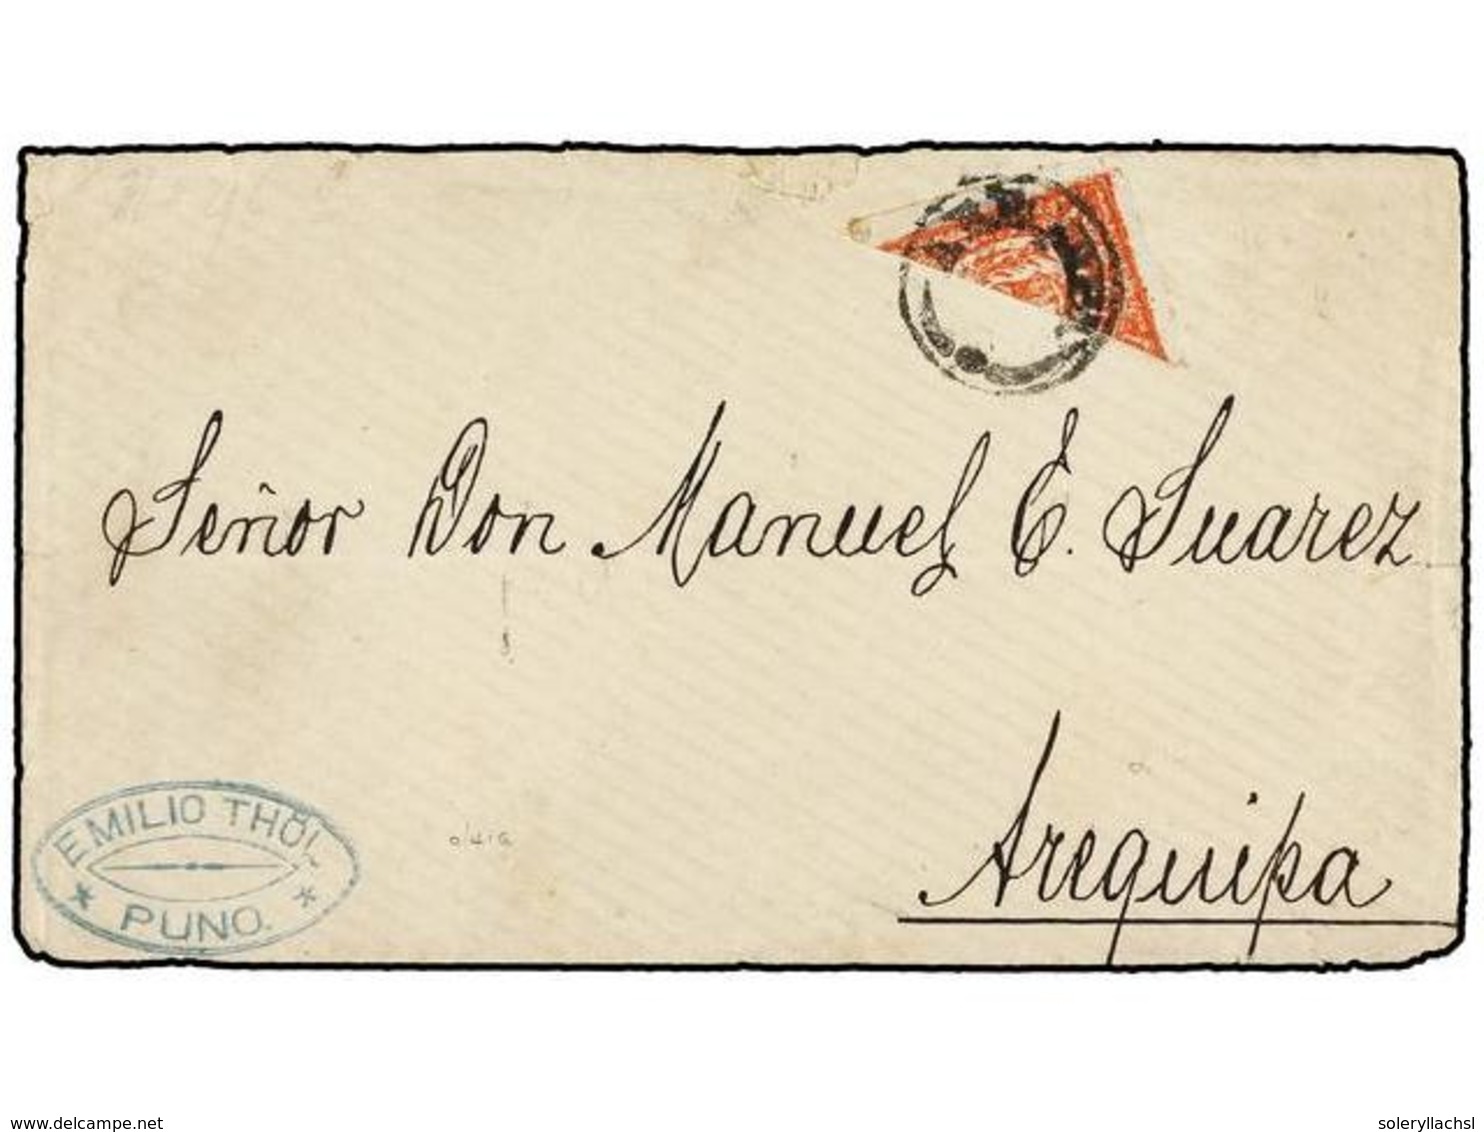 Señor Don Manuel E. Suarez
Arequipa
EMILIO THÖL
* PUNO. *
delcampe.net
soleryllachsl